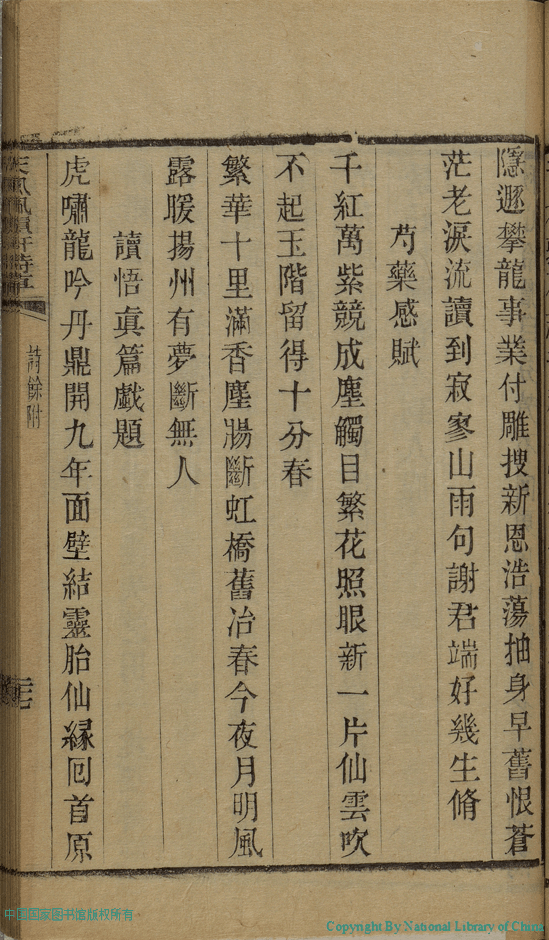 隱遯攀龍事業付雕搜新恩浩蕩抽身早舊恨蒼
茫老淚流讀到寂寥山雨句謝君端好幾生脩
芍藥感賦
千紅萬紫競成塵觸目繁花照眼新一片仙雲吹
不起玉階留得十分春
繁華十里滿香塵腸斷虹橋舊冶春今夜月明風
露暖揚州有夢斷無人
讀悟真篇戲題
虎嘯龍吟丹鼎開九年面壁結靈胎仙緣回首原
詩餘附
中国国家图书馆版权所有
Copyright By National Library of China